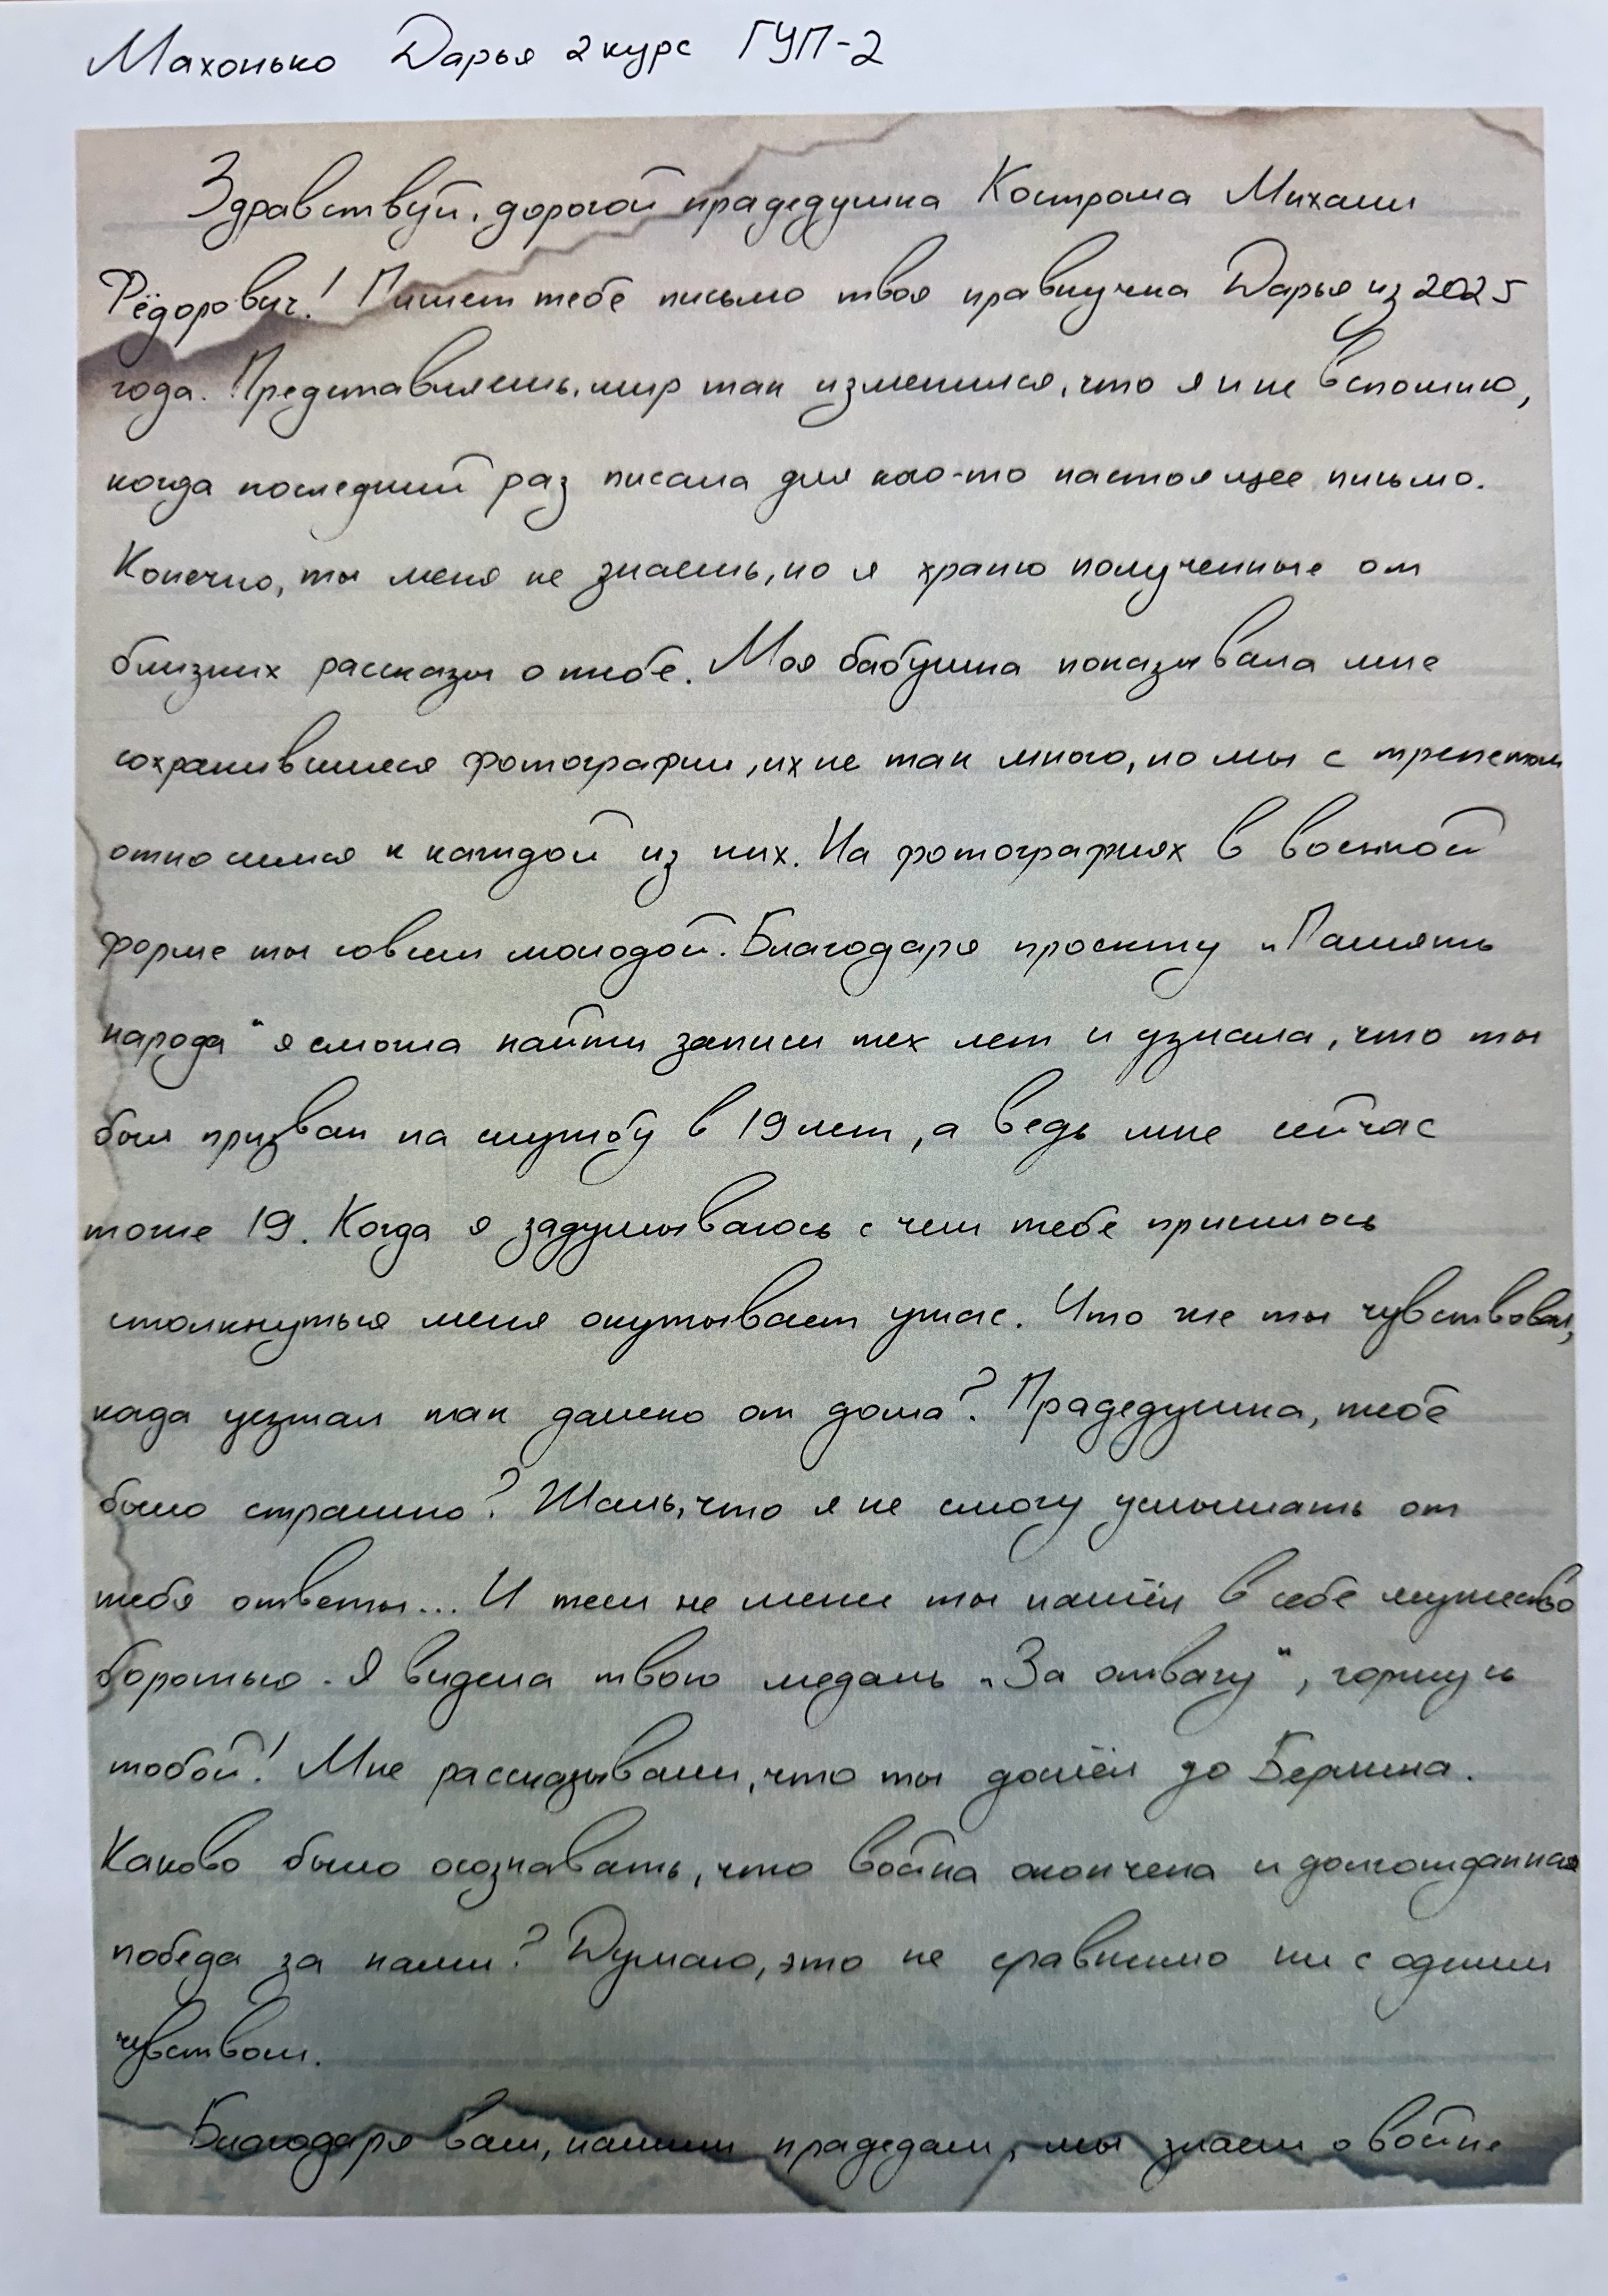 Махонько Дарья 2 курс ГУП-2
Здравствуй, дорогой прадедушка Кострома Михаил
Фёдорович! Пишет тебе письмо твоя правнучка Дарья из 2025
года. Представляешь, мир так изменился, что я и не вспомню,
когда последний раз писала для кого-то настоящее письмо.
Конечно, ты меня не знаешь, но я храню полученные от
близких рассказы о тебе. Моя бабушка показывала мне
сохранившиеся фотографии, их не так много, но мы с трепетом
относимся к каждой из них. На фотографиях в военной
форме ты совсем молодой. Благодаря проекту „Память
народа“ я смогла найти записи тех лет и узнала, что ты
был призван на службу в 19 лет, а ведь мне сейчас
тоже 19. Когда я задумываюсь с чем тебе пришлось
столкнуться меня окутывает ужас. Что же ты чувствовал,
когда уезжал так далеко от дома? Прадедушка, тебе
было страшно? Жаль, что я не смогу услышать от
тебя ответы... И тем не мение ты нашёл в себе мужество
бороться. Я видела твою медаль „За отвагу“, горжусь
тобой! Мне рассказывали, что ты дошёл до Берлина.
Каково было осознавать, что война окончена и долгожданная
победа за нами? Думаю, это не сравнимо ни с одним
чувством.
Благодаря вам, нашим прадедам, мы знаем о войне